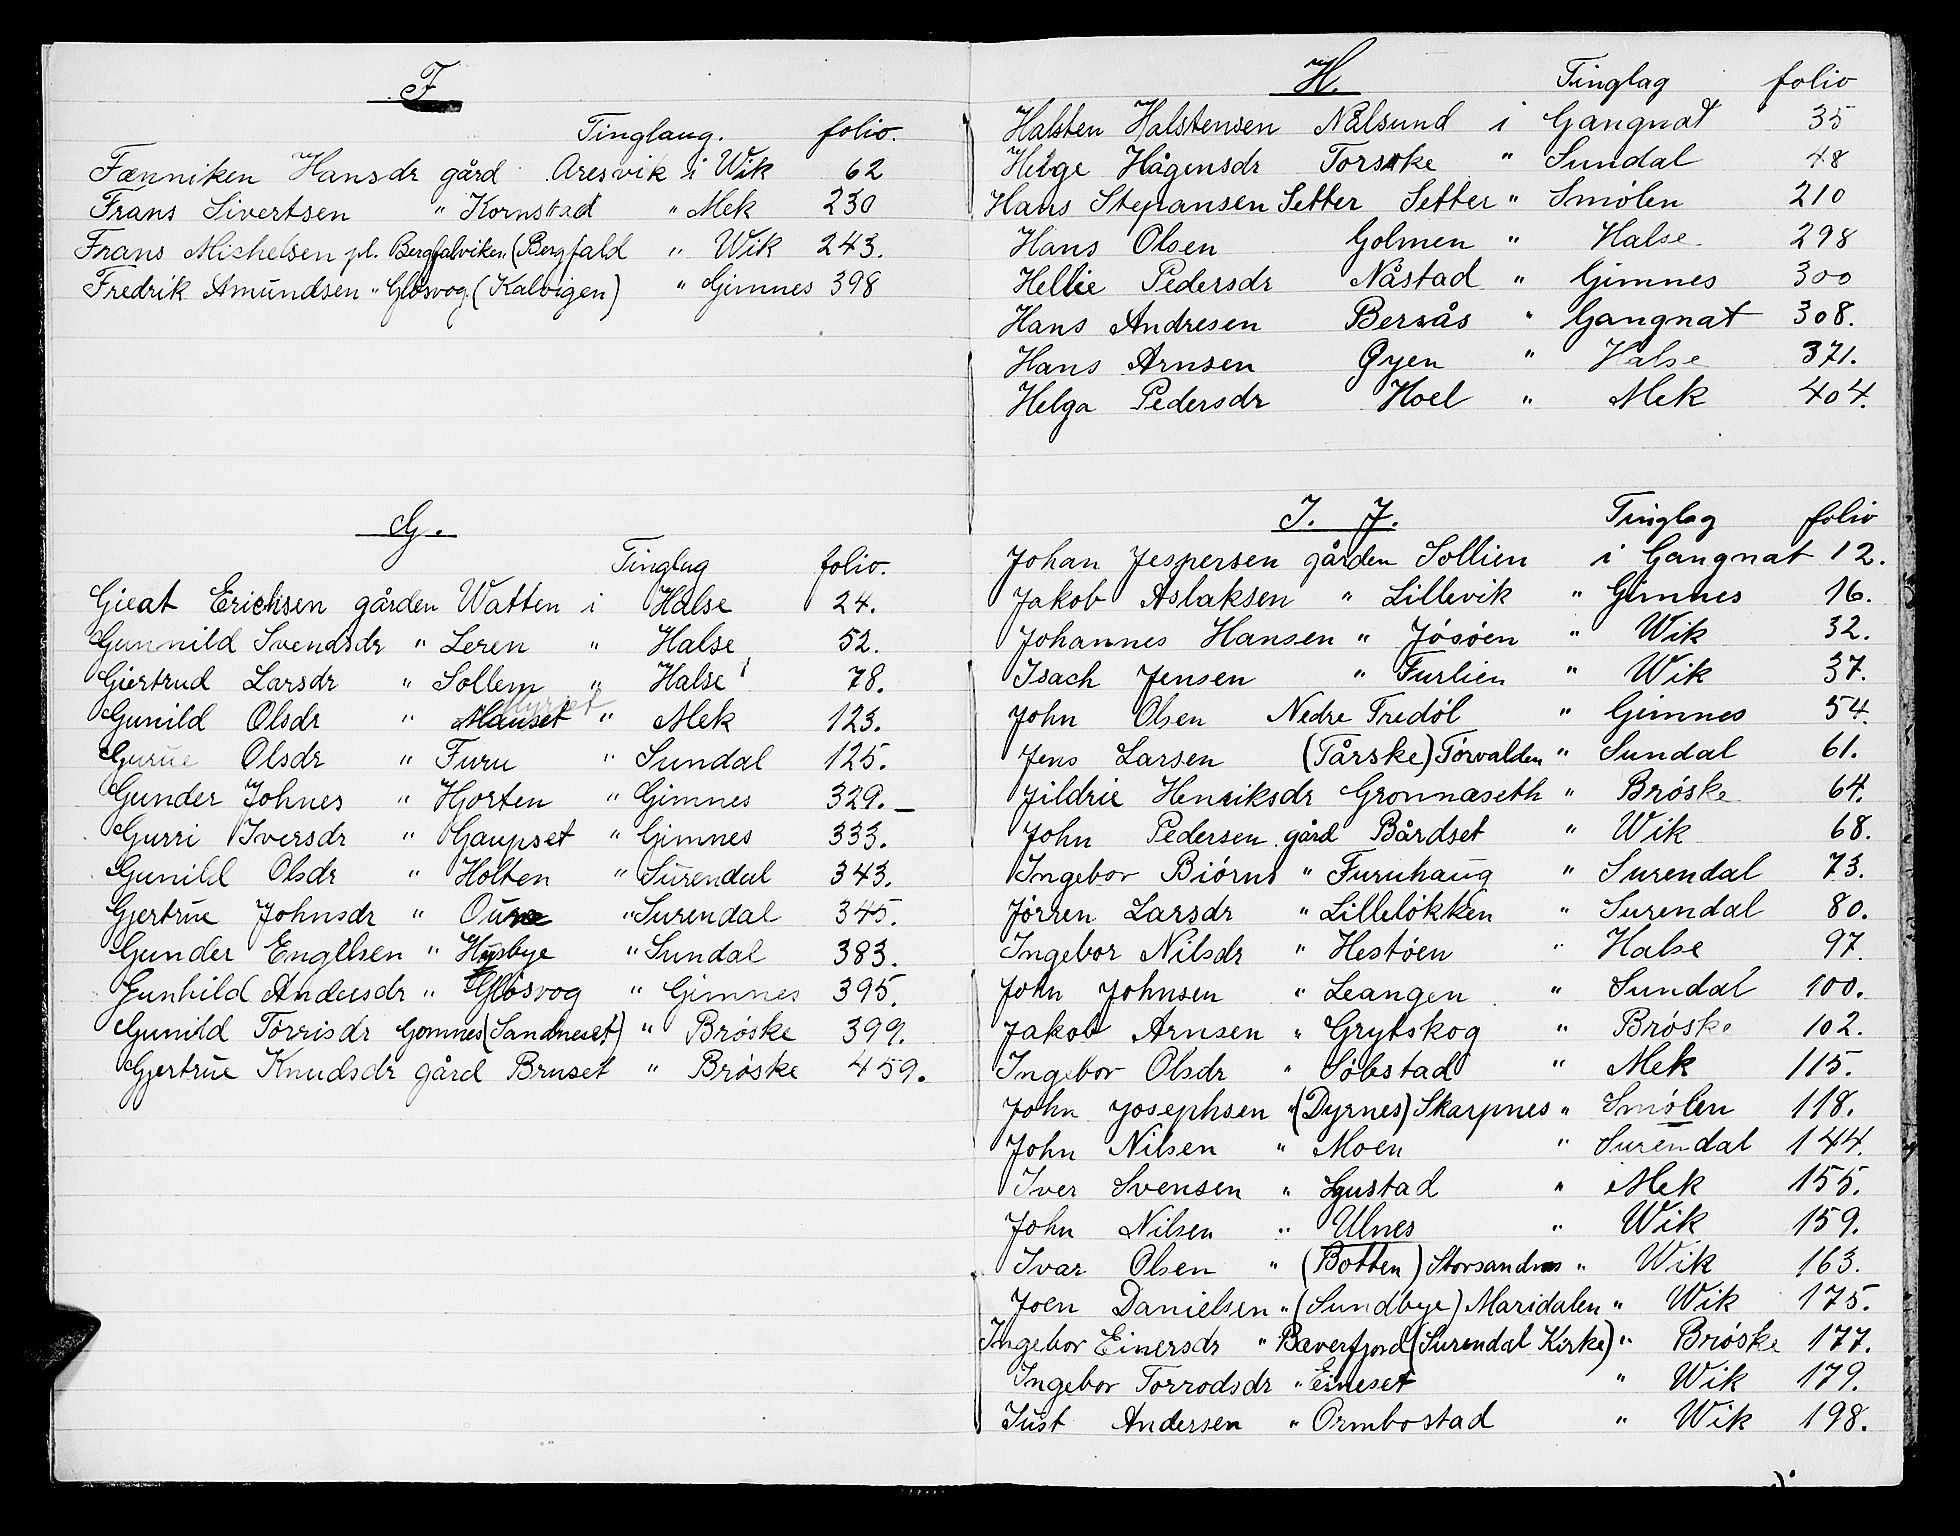 F
Tinglaug. folio.
Fænniken Hansdr gård Aresvik i Wik 62
Frans Sivertsen " Kornstad " Mek 230
Frans Michelsen pl. Bergfalviken (Bergfald " Wik 243.
Fredrik Amundsen " Gløsvog (Kalvigen) " Gimnes 398
G.
Tinglag folio.
Gieat Erichsen gården Watten i Halse 24.
Gunnild Svendsdr " Leren " Halse 52.
Giertrud Larsdr " Sollem " Halse 78.
Gunild Olsdr " Mauset " Mek 123.
Gurue Olsdr " Furu " Sundal 125.
Gunder Johnes " Hjorten " Gimnes 329.—
Gurri Iversdr " Gaupset " Gimnes 333.
Gunild Olsdr " Holten " Surendal 343.
Gjertrue Johnsdr " " Surendal 345.
Gunder Engelsen " Husbye " Sundal 383.
Gunhild Andersdr " Gløsvog " Gimnes 395.
Gunild Torrisdr Gomnes (Sandneset) " Brøske 399.
Gjertrue Knudsdr gård Bruset " Brøske 459.
H. Tinglag folio
Halsten Halstensen Nålsund i Gangnat 35
Helge Hågensdr Torske " Sundal 48
Hans Stepansen Setter Setter " Smølen 210
Hans Olsen Golmen " Halse 298
Hellie Pedersdr Nåstad " Gimnes 300
Hans Andresen Bersås " Gangnat 308.
Hans Arnsen Øyen " Halse 371.
Helga Pedersdr Hoel " Mek 404.
I. J. Tinglag folio
Johan Jespersen gården Sollien i Gangnat 12.
Jakob Aslaksen " Lillevik " Gimnes 16.
Johannes Hansen " Jøsøen " Wik 32.
Isach Jensen " Furlien " Wik 37.
John Olsen Nedre Fredøl " Gimnes 54.
Jens Larsen (Tårske) Torvalden " Sundal 61.
Jildrie Henriksdr Gronnæseth " Brøske 64.
John Pedersen gård Bårdset " Wik 68.
Ingebor Biørns " Furuhaug " Surendal 73.
Jørren Larsdr " Lilleløkken " Surendal 80.
Ingebor Nilsdr " Hestøen " Halse 97
John Johnsen " Leangen " Sundal 100.
Jakob Arnsen " Grytskog " Brøske 102.
Ingebor Olsdr " Søbstad " Mek 115.
John Josephsen " (Dyrnes) Skarpnes " Smølen 118.
John Nilsen " Moen " Surendal 144.
Iver Svensen " " Mek 155.
John Nilsen " Ulnes " Wik 159.
Ivar Olsen " (Botten) Storsandnes " Wik 163.
Joen Danielsen " (Sundbye) Maridalen " Wik 175.
Ingebor Einersdr " Bæverfjord (Surendal Kirke) " Brøske 177.
Ingebor Torrodsdr " Eineset " Wik 179.
Just Andersen " Ormbostad " Wik 198.